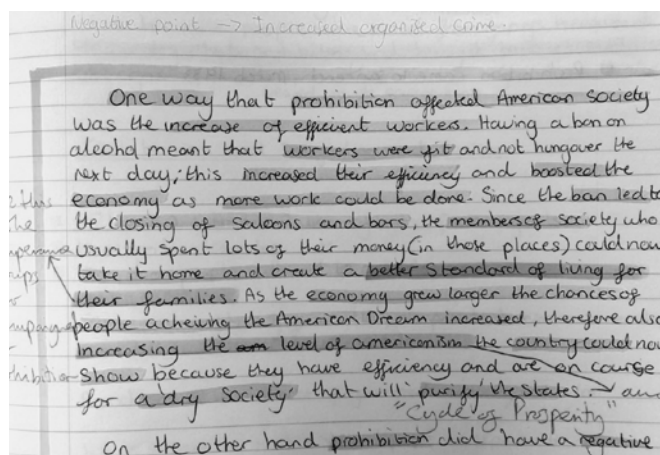 Negative point -> Increased organised crime.
One way that prohibition affected American society
was the increase of efficient workers. Having a ban on
alcohol meant that workers were fit and not hungover the
next day, this increased their efficiency and boosted the
this economy as more work could be done. Since the ban led to
the the closing of saloons and bars, the members of society who
usually spent lots of their money (in those places) could now
take it home and create a better standard of living for
their families. As the economy grew larger the chances of
people acheiving the American Dream increased, therefore also
increasing the level of americanism the country could now
show because they have efficiency and are on course
for a 'dry society' that will 'purify' the states.
"Cycle of Prosperity"
On the other hand prohibition did have a negative